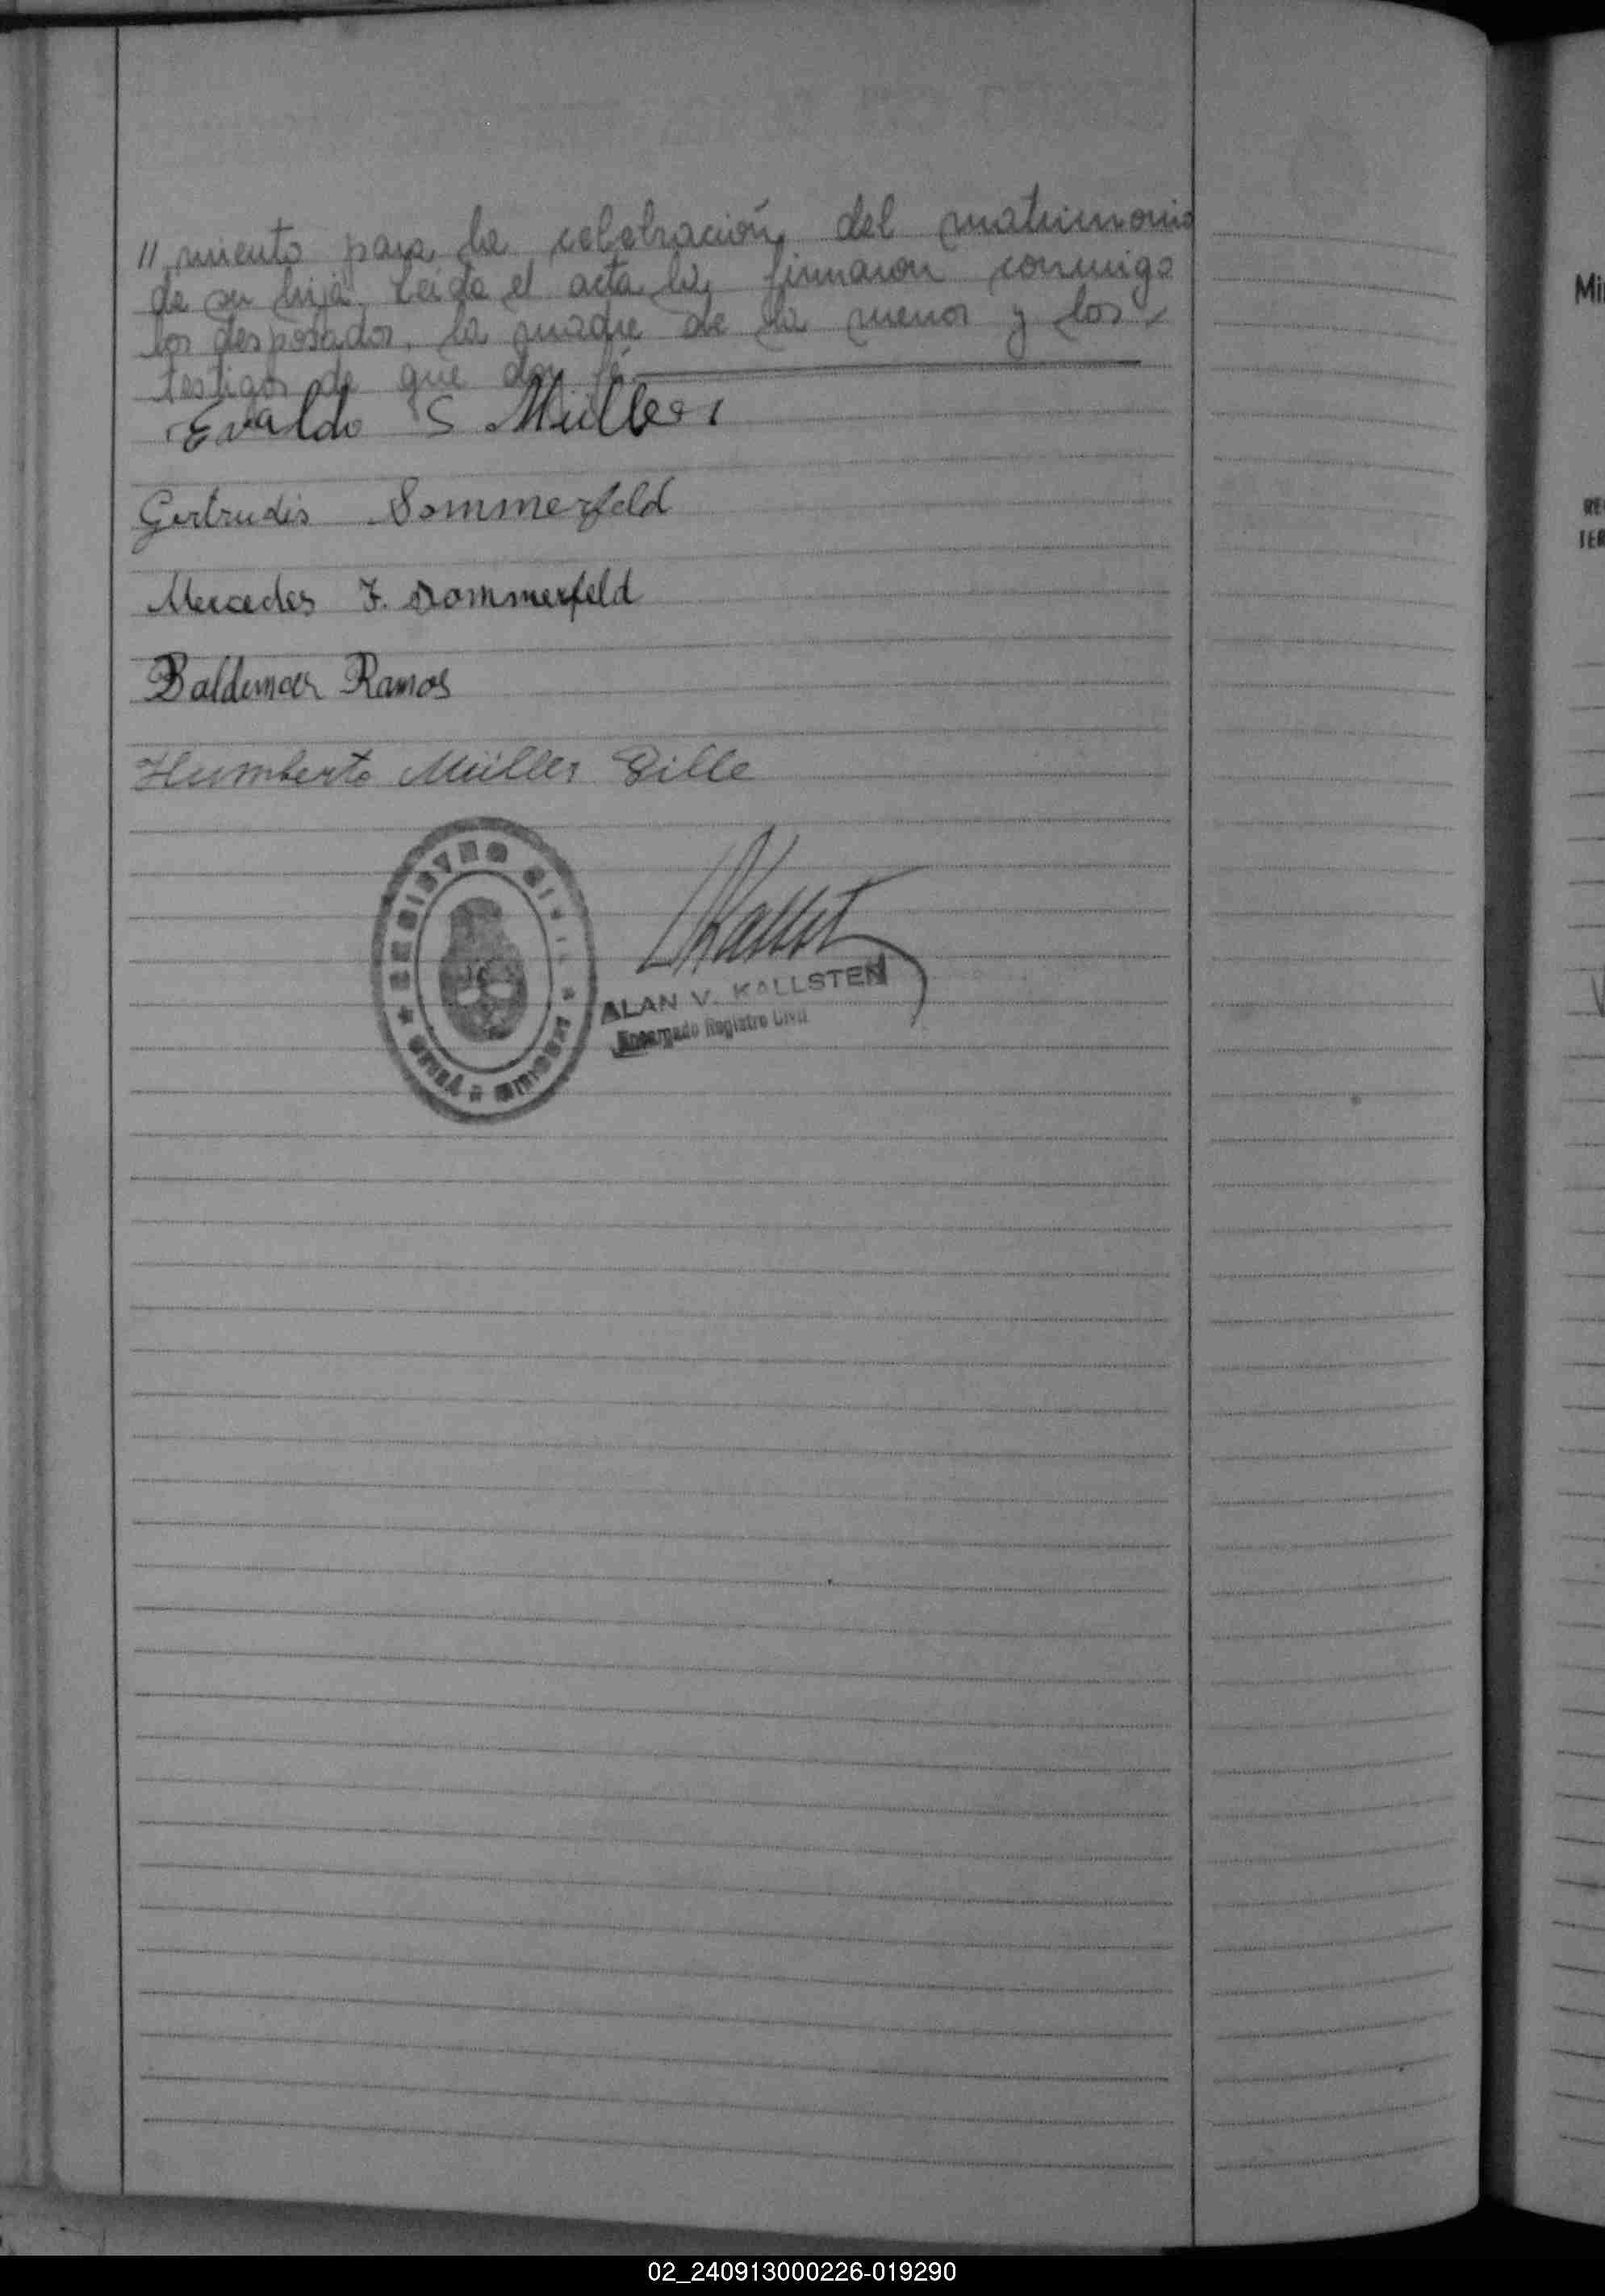 // miento para la celebración del matrimonio
de su hija. Leída el acta la firmaron conmigo
los desposados, la madre de la menor y los
testigos de que doy fé.
Evaldo S Müller
Gertrudis Sommerfeld
Mercedes F. Sommerfeld
Baldemar Ramos
Humberto Müller Gille
REGISTRO CIVIL
MISIONES
ALAN V. KALLSTEN
Encargado Registro Civil
Mi
RE
TER
02_240913000226-019290